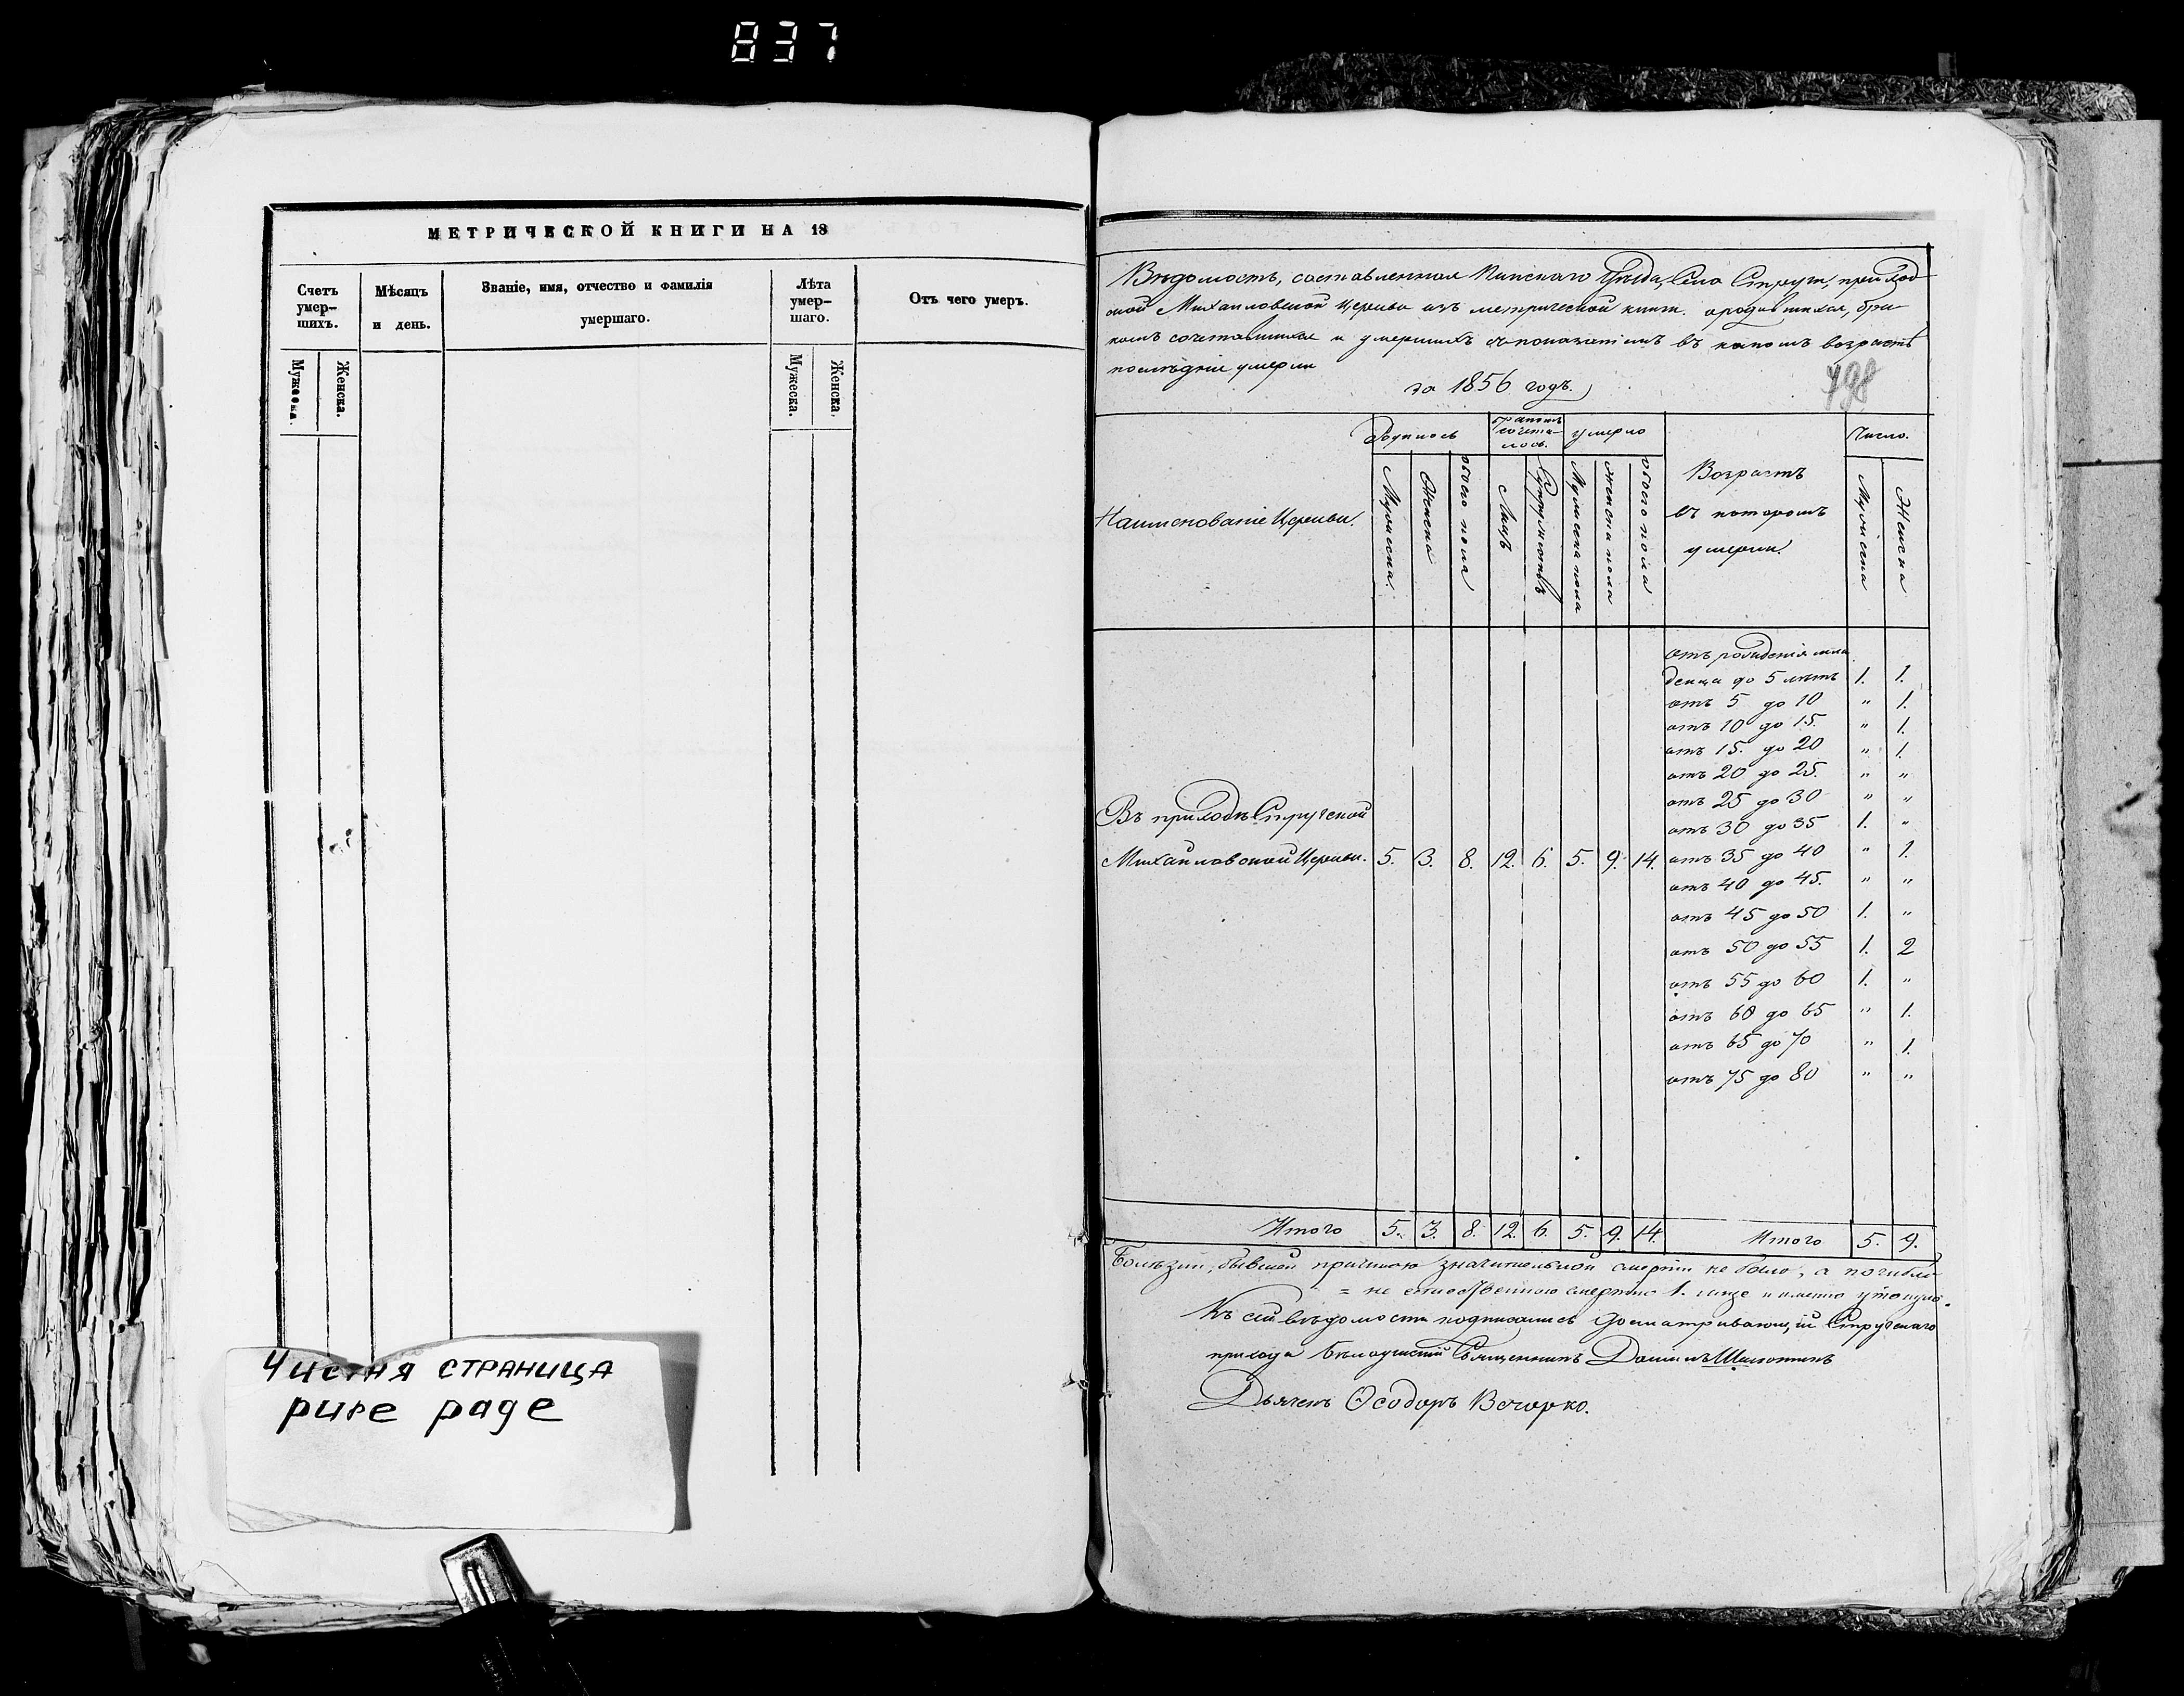 837
МЕТРИЧЕСКОЙ КНИГИ НА 18
Счетъ умер-шихъ.
Мѣсяцъ и день.
Званіе, имя, отчество и фамилія умершаго.
Лѣта умер-шаго.
Отъ чего умеръ.
Мужеска.
Женска.
Мужеска.
Женска.
Чистая страница
pure page
Вѣдомость, составленная Пинскаго Уѣзда, Села Струги, приход
ской Михайловской Церкви изъ метрической книги. о родившихся, бра
комъ сочетавшихся и умершихъ съ показаніемъ въ какомъ возрастѣ
послѣдніе умерли
за 1856 годъ.
798
Наименованіе Церкви.
Родилось
Бракомъ сочета-лось.
умерло
Возрастъ
въ которомъ
умерли.
Число.
Мужеска.
Женска
обоего пола
Лицъ
Супружествъ
Мужеска пола
женска пола
обоего пола
Мужеска
Женска
отъ рожденія мла
денца до 5 лѣтъ 1. 1.
отъ 5 до 10 " 1.
отъ 10 до 15. " 1.
отъ 15. до 20 " 1.
отъ 20 до 25. " "
отъ 25 до 30 " "
отъ 30 до 35 1. "
Въ приходѣ Стружской
Михайловской Церкви. 5. 3. 8. 12. 6. 5. 9. 14. отъ 35 до 40 " 1.
отъ 40 до 45. " "
отъ 45 до 50 1. "
отъ 50 до 55 1. 2
отъ 55 до 60 1. "
отъ 60 до 65 " 1.
отъ 65 до 70 " 1.
отъ 75 до 80 " "
Итого 5. 3. 8. 12. 6. 5. 9. 14. Итого 5. 9.
Болѣзни, бывшей причиною значительной смерти не было, а погибло
= не естественною смертію 1. лице и именно утонуло.
Къ сей вѣдомости подписались Досматривающій Стружскаго
прихода Священникъ Даніилъ
Дьячекъ Ѳеодоръ Вечорко.